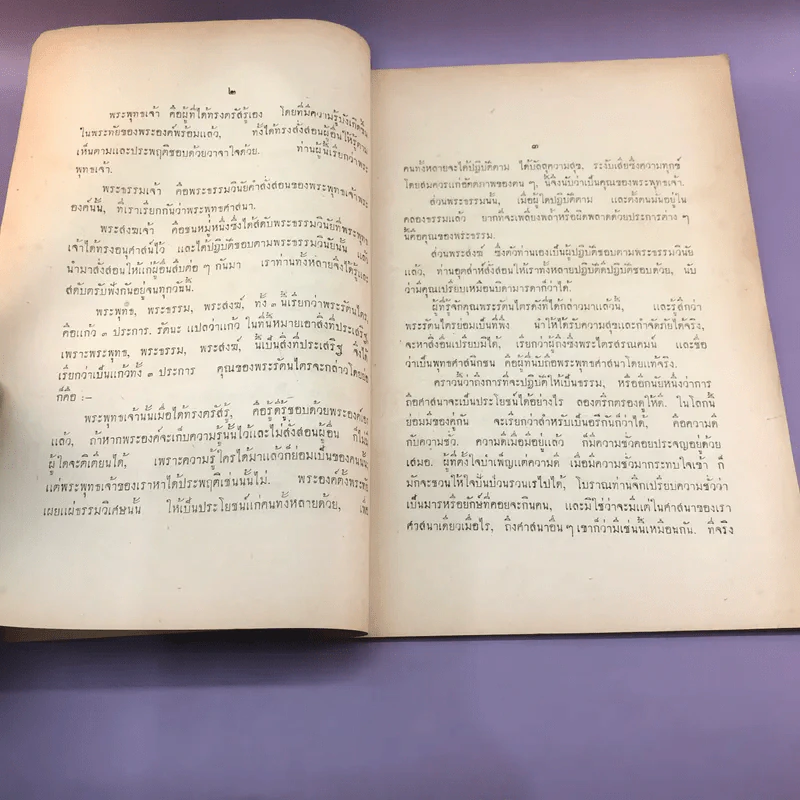 ๒
พระพุทธเจ้า คือผู้ที่ได้ทรงตรัสรู้เอง โดยที่มีความรู้บังเกิดขึ้น
ในพระทัยของพระองค์พร้อมแล้ว, ทั้งได้ทรงสั่งสอนผู้อื่นให้รู้ตาม
เห็นตามและประพฤติชอบด้วยวาจาใจด้วย. ท่านผู้นี้เรียกว่าพระ
พุทธเจ้า.
พระธรรมเจ้า คือพระธรรมวินัยคำสั่งสอนของพระพุทธเจ้าพระ
องค์นั้น, ที่เราเรียกกันว่าพระพุทธศาสนา.
พระสงฆเจ้า คือชนหมู่หนึ่งซึ่งได้สดับพระธรรมวินัยที่พระพุทธ
เจ้าได้ทรงอนุศาสน์ไว้ และได้ปฏิบัติชอบตามพระธรรมวินัยนั้น แล้ว
นำมาสั่งสอนให้แก่ผู้อื่นสืบต่อ ๆ กันมา เราท่านทั้งหลายจึงได้รู้และ
สดับตรับฟังกันอยู่จนทุกวันนี้.
พระพุทธ, พระธรรม, พระสงฆ์, ทั้ง ๓ นี้เรียกว่าพระรัตนไตร,
คือแก้ว ๓ ประการ. รัตนะ แปลว่าแก้ว ในที่นี้หมายเอาสิ่งที่ประเสริฐ
เพราะพระพุทธ, พระธรรม, พระสงฆ์, นี้เป็นสิ่งที่ประเสริฐ จึงได้
เรียกว่าเป็นแก้วทั้ง ๓ ประการ คุณของพระรัตนไตรจะกล่าวโดยย่อ
ก็คือ :-
พระพุทธเจ้านั้นเมื่อได้ทรงตรัสรู้, คือรู้ดีรู้ชอบด้วยพระองค์เอง
แล้ว, ถ้าหากพระองค์จะเก็บความรู้นั้นไว้และไม่สั่งสอนผู้อื่น ก็ไม่มี
ผู้ใดจะติเตียนได้, เพราะความรู้ใครได้มาแล้วก็ย่อมเป็นของคนนั้น
แต่พระพุทธเจ้าของเราหาได้ประพฤติเช่นนั้นไม่. พระองค์ตั้งพระทัย
เผยแผ่ธรรมวิเศษนั้น ให้เป็นประโยชน์แก่คนทั้งหลายด้วย, เมื่อ
๓
คนทั้งหลายจะได้ปฏิบัติตาม ได้บัลลุความสุข, ระงับเสียซึ่งความทุกข์
โดยสมควรแก่อัตตภาพของตน ๆ, นี้จึงนับว่าเป็นคุณของพระพุทธเจ้า.
ส่วนพระธรรมนั้น, เมื่อผู้ใดปฏิบัติตาม และตั้งตนมั่นอยู่ใน
คลองธรรมแล้ว ยากที่จะเพลี่ยงพล้ำหรือผิดพลาดด้วยประการต่าง ๆ
นี้คือคุณของพระธรรม.
ส่วนพระสงฆ์ ซึ่งตัวท่านเองเป็นผู้ปฏิบัติชอบตามพระธรรมวินัย
แล้ว, ท่านอุตส่าห์สั่งสอนให้เราทั้งหลายปฏิบัติดีปฏิบัติชอบด้วย, นับ
ว่ามีคุณเปรียบเหมือนบิดามารดาก็ว่าได้.
ผู้ที่รู้จักคุณพระรัตนไตรดังที่ได้กล่าวมาแล้วนั้น, และรู้สึกว่า
พระรัตนไตรย่อมเป็นที่พึ่ง นำให้ได้รับความสุขและกำจัดภัยได้จริง,
จะหาสิ่งอื่นเปรียบมิได้, เรียกว่าผู้ถึงซึ่งพระไตรสรณคมน์ และชื่อ
ว่าเป็นพุทธศาสนิกชน คือผู้ที่นับถือพระพุทธศาสนาโดยแท้จริง.
คราวนี้ว่าถึงการที่จะปฏิบัติให้เป็นธรรม, หรืออีกนับหนึ่งว่าการ
ถือศาสนาจะเป็นประโยชน์ได้อย่างไร ลองตริกตรองดูให้ดี. ในโลกนี้
ย่อมมีของคู่กัน จะเรียกว่าสำหรับเป็นอริกันก็ว่าได้, คือความดี
กับความชั่ว, ความดีเมื่อมีอยู่แล้ว ก็มีความชั่วคอยประจญอยู่ด้วย
เสมอ. ผู้ที่ตั้งใจบำเพ็ญแต่ความดี เมื่อมีความชั่วมากระทบใจเข้า ก็
มักจะชวนให้ใจปั่นป่วนรวนเรไปได้, โบราณท่านจึงเปรียบความชั่วว่า
เป็นมารหรือยักษ์ที่คอยจะกินคน, และมิใช่ว่าจะมีแต่ในศาสนาของเรา
ศาสนาเดียวเมื่อไร, ถึงศาสนาอื่น ๆ เขาก็ว่ามีเช่นนี้เหมือนกัน. ที่จริง